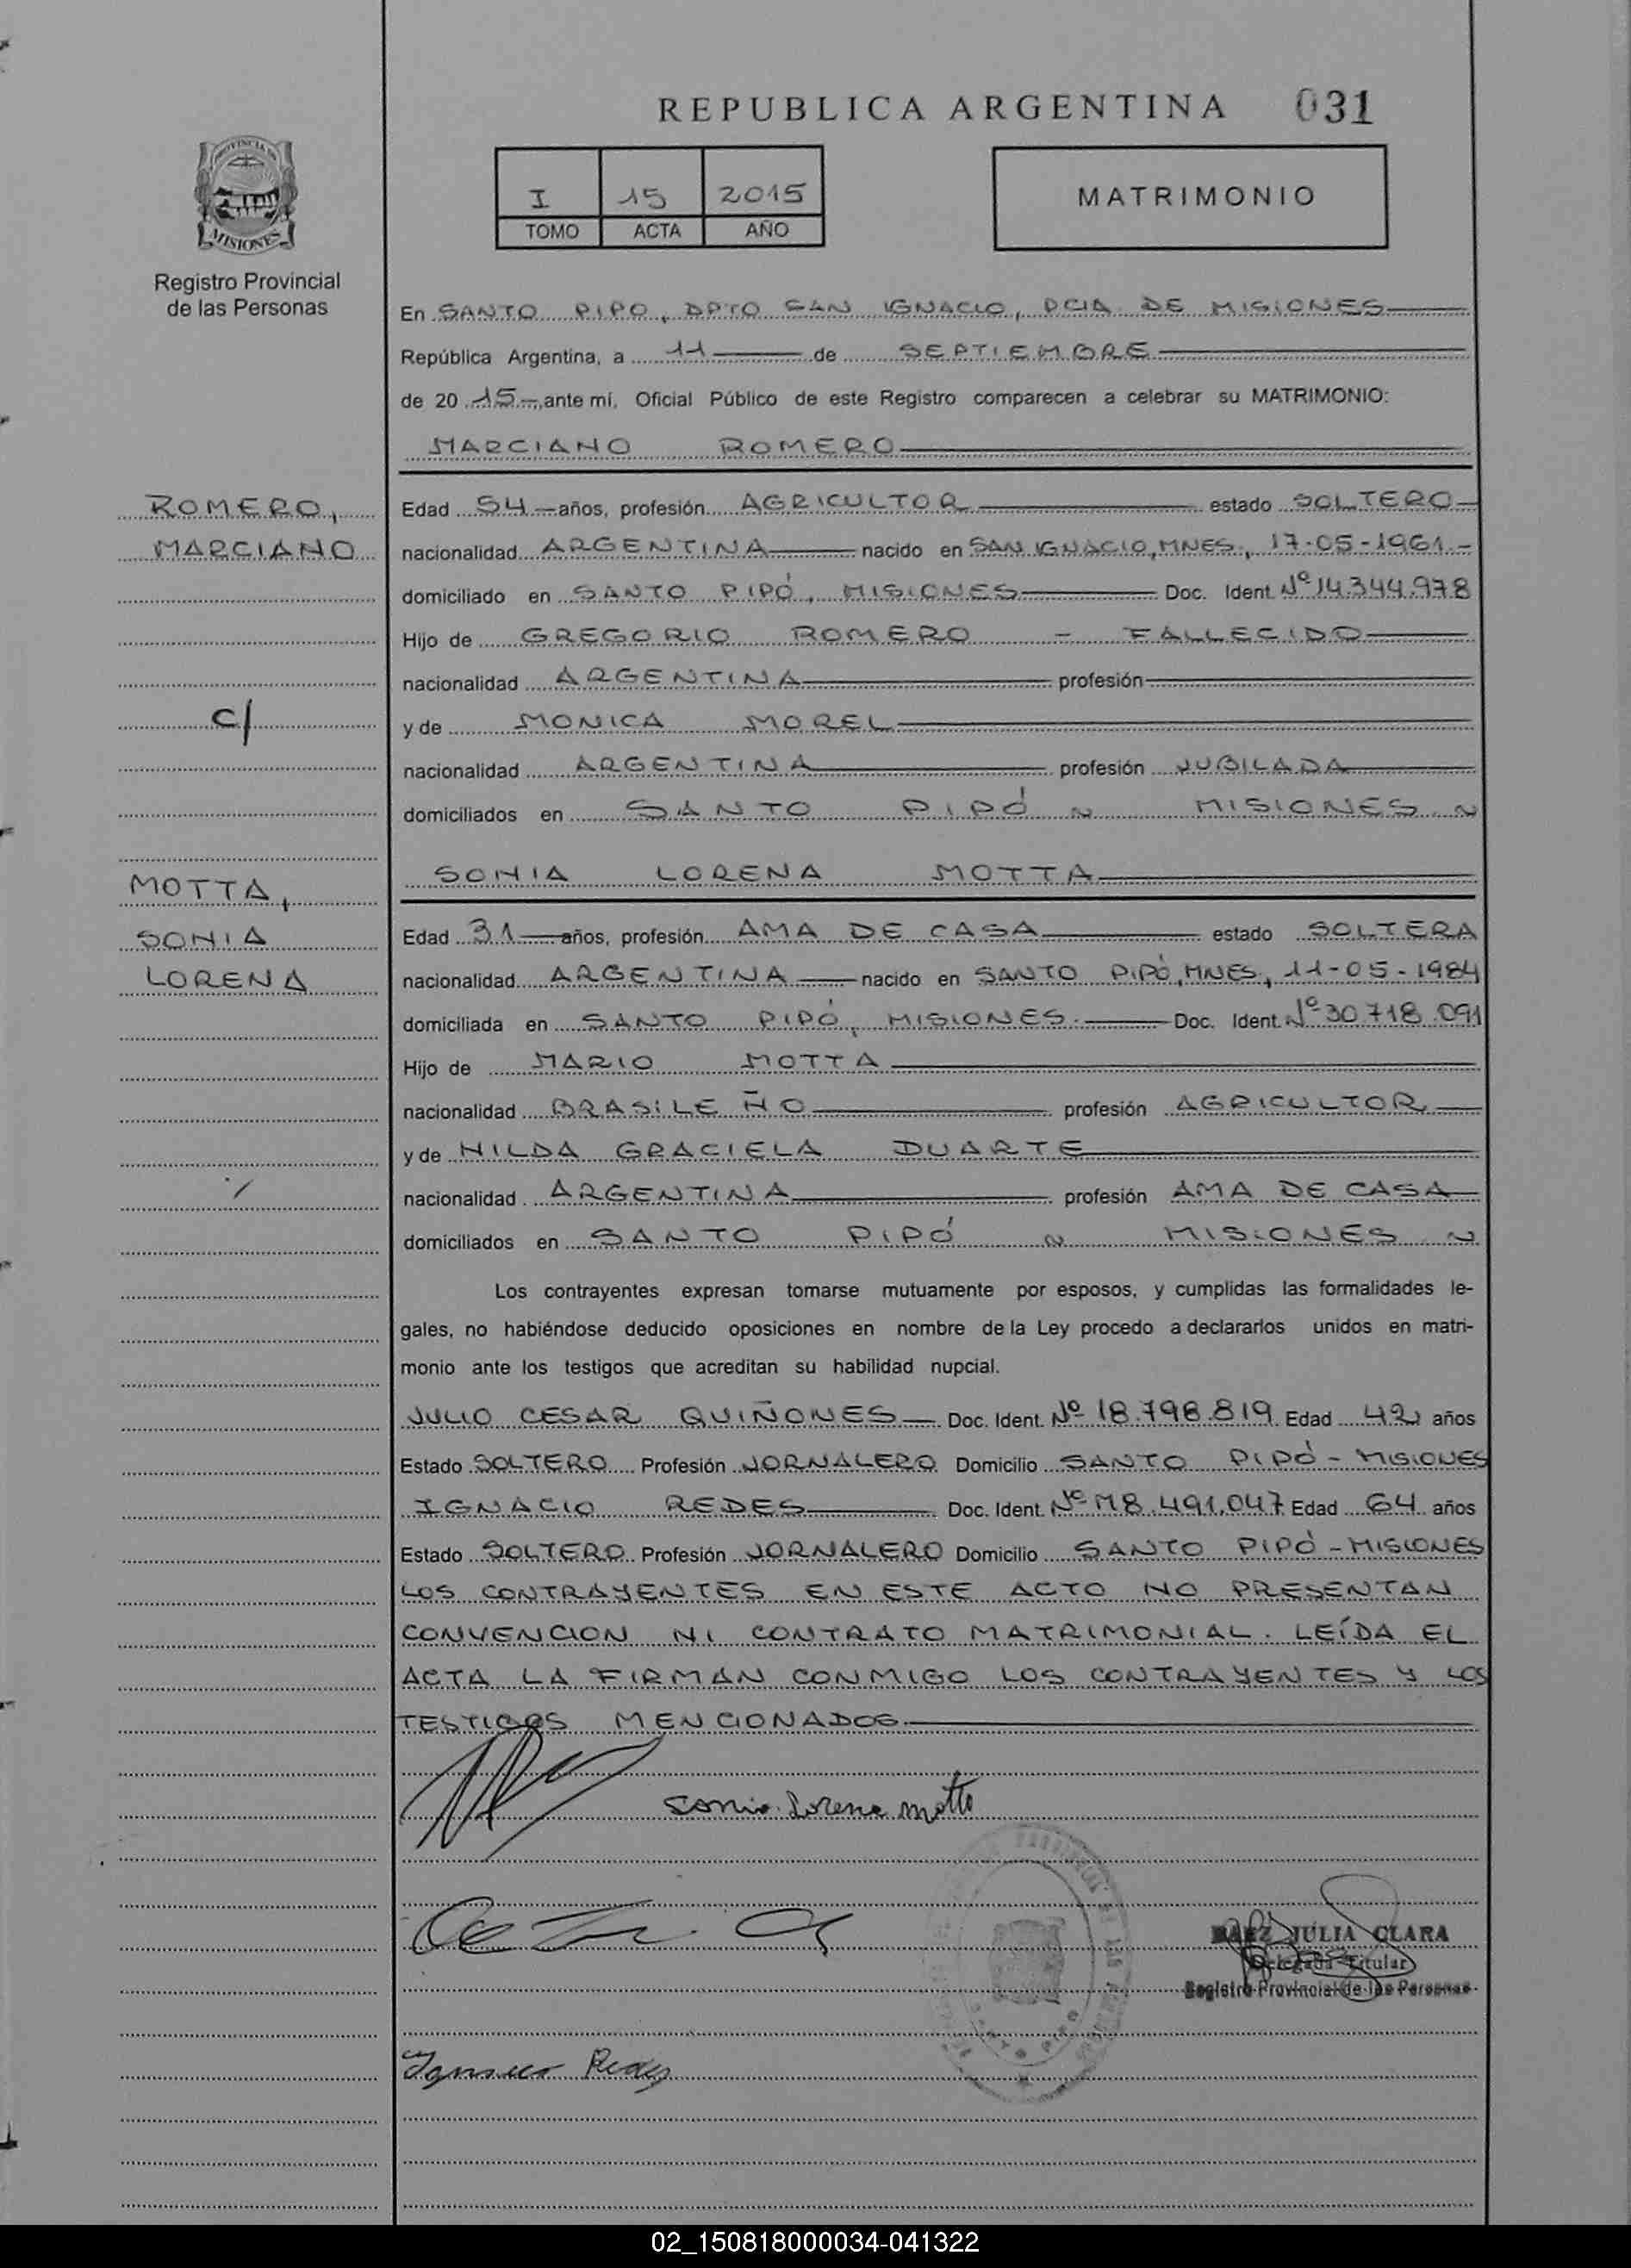 REPUBLICA ARGENTINA 031
I 15 2015
TOMO ACTA AÑO
MATRIMONIO
PROVINCIA DE
MISIONES
Registro Provincial
de las Personas
En SANTO PIPO, DPTO SAN IGNACIO, PCIA DE MISIONES
República Argentina, a 11 de SEPTIEMBRE
de 20 15 ante mí, Oficial Público de este Registro comparecen a celebrar su MATRIMONIO:
MARCIANO ROMERO
ROMERO,
MARCIANO
Edad 54 años, profesión AGRICULTOR estado SOLTERO
nacionalidad ARGENTINA nacido en SAN IGNACIO, MNES, 17-05-1961.-
domiciliado en SANTO PIPÓ, MISIONES Doc. Ident. Nº 14.344.978
Hijo de GREGORIO ROMERO - FALLECIDO
nacionalidad ARGENTINA profesión
C/
y de MONICA MOREL
nacionalidad ARGENTINA profesión JUBILADA
domiciliados en SANTO PIPÓ ~ MISIONES ~
MOTTA,
SONIA
LORENA
SONIA LORENA MOTTA
Edad 31 años, profesión AMA DE CASA estado SOLTERA
nacionalidad ARGENTINA nacido en SANTO PIPÓ, MNES, 11-05-1984
domiciliada en SANTO PIPÓ, MISIONES. Doc. Ident. Nº 30.718.091
Hijo de MARIO MOTTA
nacionalidad BRASILEÑO profesión AGRICULTOR
y de HILDA GRACIELA DUARTE
nacionalidad ARGENTINA profesión AMA DE CASA
domiciliados en SANTO PIPÓ ~ MISIONES ~
Los contrayentes expresan tomarse mutuamente por esposos, y cumplidas las formalidades le-
gales, no habiéndose deducido oposiciones en nombre de la Ley procedo a declararlos unidos en matri-
monio ante los testigos que acreditan su habilidad nupcial.
JULIO CESAR QUIÑONES Doc. Ident. Nº 18.798.819 Edad 42 años
Estado SOLTERO Profesión JORNALERO Domicilio SANTO PIPÓ - MISIONES
IGNACIO REDES Doc. Ident. Nº M8.491.047 Edad 64 años
Estado SOLTERO Profesión JORNALERO Domicilio SANTO PIPÓ - MISIONES
LOS CONTRAYENTES EN ESTE ACTO NO PRESENTAN
CONVENCION NI CONTRATO MATRIMONIAL. LEÍDA EL
ACTA LA FIRMAN CONMIGO LOS CONTRAYENTES Y LOS
TESTIGOS MENCIONADOS
Sonia Lorena Motta
BAEZ JULIA CLARA
Delegada Titular
Registro Provincial de las Personas
Ignacio Redes
02_150818000034-041322